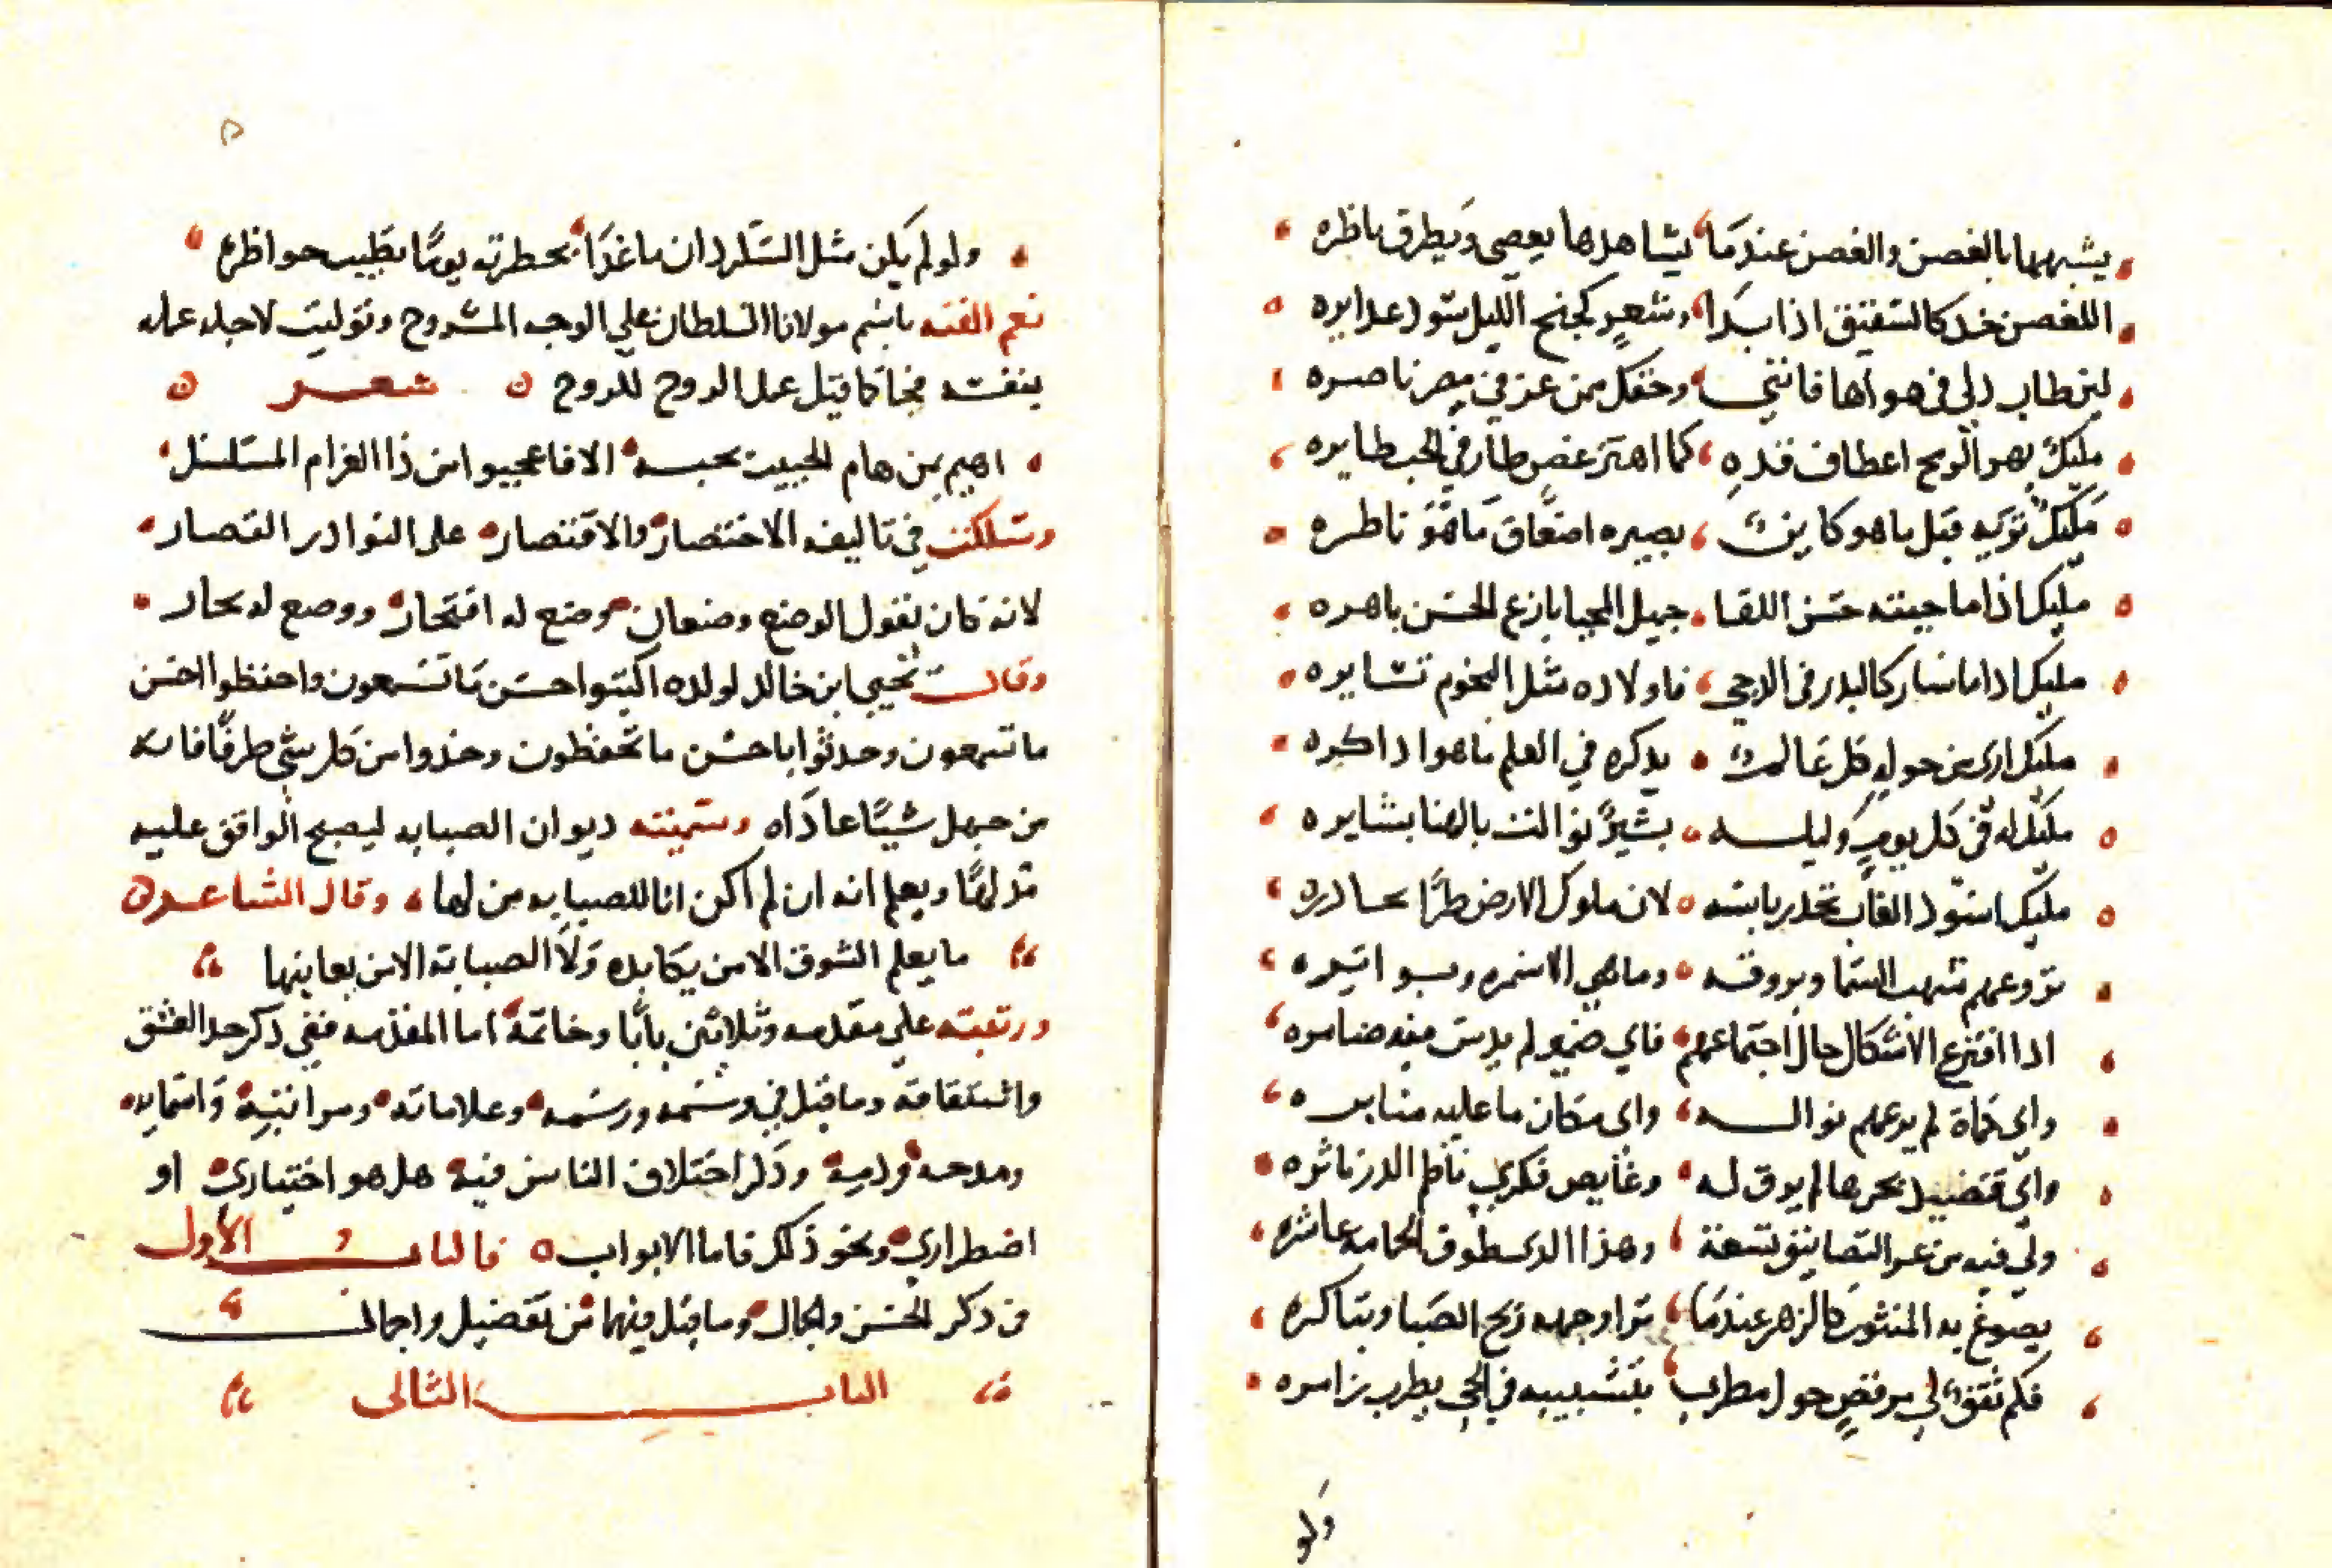 يشبهها بالغصن والغصن عندما يشاهدها يعصى ويطرق ناظره
اللغصن خد كالشقيق اذا بدا وشعر كجنح الليل سود غدايره
لين طاب دلى في هواها فانني وحقك ممن عز في مصر ناصره
مليك يهوالريح اعطاف قده كما اهتز غصن طار في الحب طايره
مليك تريه قبل ما هو كاين بصيره اضعاف ما هو ناظره
مليك اذا ما جيته حسن اللقا جميل المحيا بارع الحسن باهره
مليك اذا ما سار كالبدر في الدجى فاولاده مثل النجوم تسايره
مليك ارى من حوله كل عالم يذكره في العلم ما هوا ذاكره
مليك له في كل يوم وليلة بشير نوالت بالهنا بشايره
مليك اسود الغاب تخدر بابه لان ملوك الارض طرا تحادره
تروعهم شهب السما وبروقه وما هي الا سمره وبواتره
اذا اقترع الاشكال حال اجتماعهم فاي ضمير لم يدس فيه ضامره
واي حماة لم يرعهم نواله واى مكان ما عليه منابره
واي قصيد بحرها لم يرق له وغايص فكري ناظم الدر ناثره
ولي فيه من غر التصانيف تسعة وهذا الدى طوق الحمامة عاشره
يصوغ به المنثور كالزهر عندما تراوحه ريح الصبا وتباكره
فكم ثقفت لي مرقص حول مطرب بتشبيبه في الحي يطرب زامره
ولو
٥
ولو لم يكن مثل السكردان ما غدا بحطرته يوما تطيب حواظره
نعم الفته باسم مولانا السلطان على الوجه المشروح وتوليت لاجله عمله
بنفسه فجا كما قيل عمل الروح للروح شعر
اهيم بمن هام الحبيب بحبه الا فاعجبوا من ذا الغرام المسلسل
وسلكت في تاليفه الاختصار والاقتصار على النوادر القصار
لانه كان يقول الوضع وضعان وضع له افتخار ووضع له بحار
وقال يحيى ابن خالد لولده اكتبوا احسن ما تسمعون واحفظوا احسن
ما تسمعون وحدثوا باحسن ما تحفظون وخذوا من كل شي طرفا فانه
من جهل شيا عاداه وسميته ديوان الصبابه ليصبح الواقف عليه
قد لها ويعلم انه ان لم اكن انا للصبابه من لها وقال الشاعر
ما يعلم الشوق الا من يكابده ولا الصبابة الا من يعاينها
ورتبته على مقدمه وثلاثين بابا وخاتمة اما المقدمه ففي ذكر حد العشق
واشتقاقه وما قيل في وسمه ورسمه وعلاماته ومراتبه واسمايه
ومدحه وذمه وذكر اختلاف الناس فيه هل هو اختياري او
اضطراري ونحو ذلك فاما الابواب فالباب الاول
في ذكر الحسن والجمال وما قيل فيهما من تفضيل واجمال
الباب الثانى